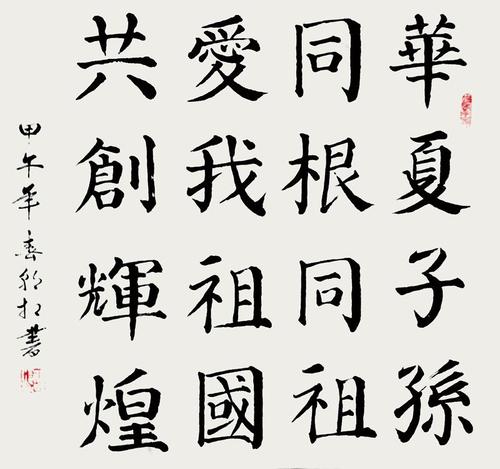 華夏子孫
同根同祖
愛我祖國
共創輝煌
甲午年
書